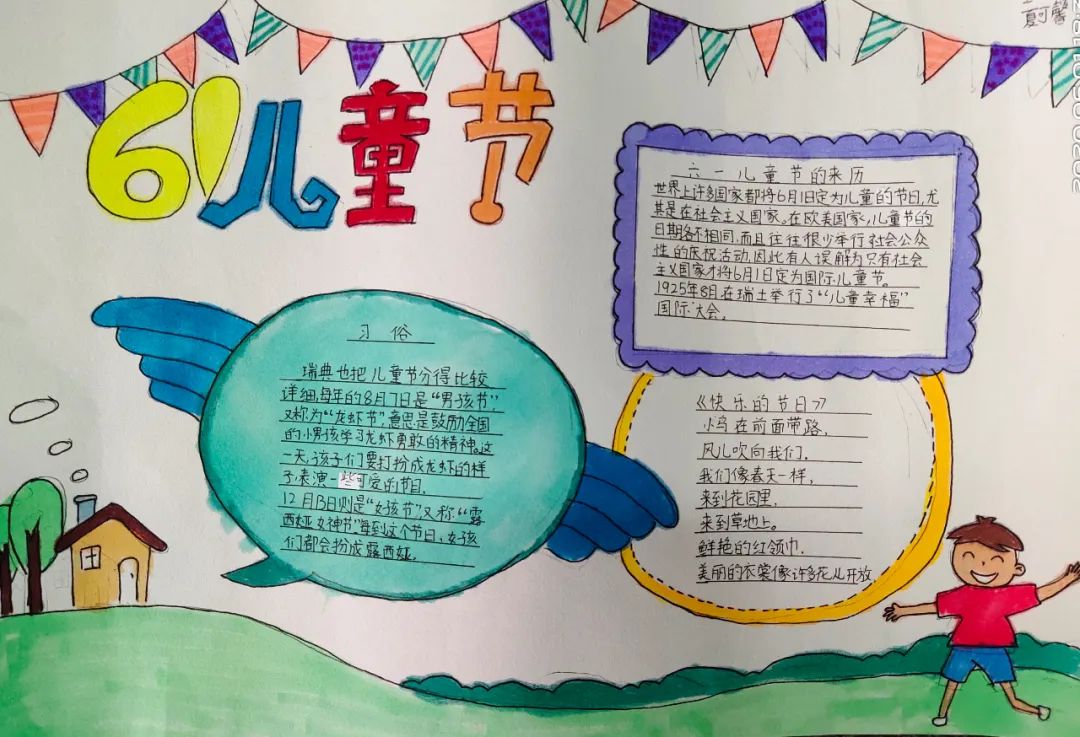 61儿童节
六一儿童节的来历
世界上许多国家都将6月1日定为儿童的节日,尤
其是在社会主义国家。在欧美国家,儿童节的
日期各不相同,而且往往很少举行社会公众
性的庆祝活动,因此有人误解为只有社会
主义国家才将6月1日定为国际儿童节。
1925年8月在瑞士举行了“儿童幸福”
国际大会。
习俗
瑞典也把儿童节分得比较
详细,每年的8月7日是“男孩节”,
又称为“龙虾节”,意思是鼓励全国
的小男孩学习龙虾勇敢的精神。这
一天,孩子们要打扮成龙虾的样
子,表演一些可爱的节目.
12月13日则是“女孩节”又称“露
西娅女神节”每到这个节日,女孩
们都会扮成露西娅.
《快乐的节日》
小鸟在前面带路,
风儿吹向我们.
我们像春天一样,
来到花园里,
来到草地上。
鲜艳的红领巾.
美丽的衣裳像许多花儿开放.
夏可馨